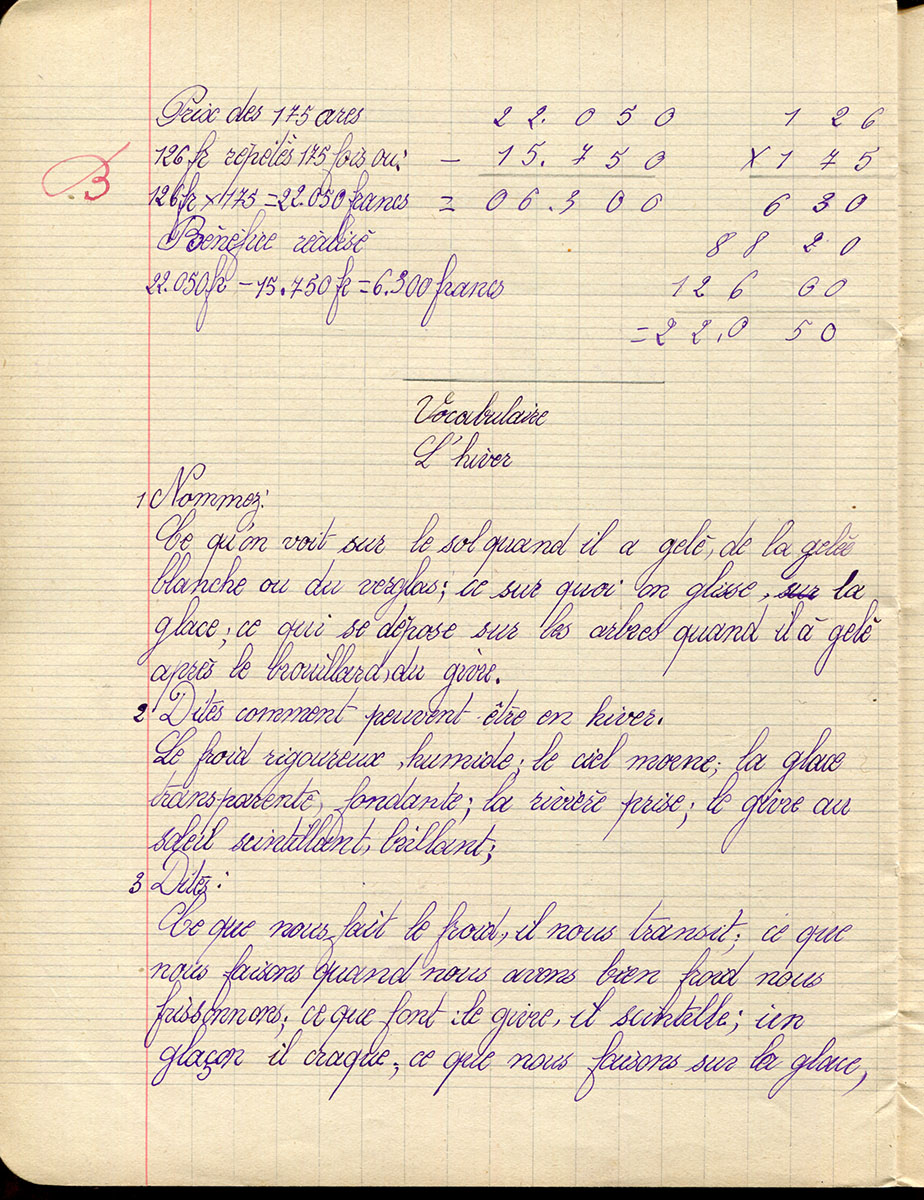 Prix des 175 ares 22.050 126
126 fr répétés 175 fois ou: - 15.750 × 175
B
126 fr × 175 = 22.050 francs = 06.300 630
Bénéfice réalisé 8820
22.050 fr - 15.750 fr = 6.300 francs 12600
= 22.050
Vocabulaire
L'hiver
1 Nommez:
Ce qu'on voit sur le sol quand il a gelé, de la gelée
blanche ou du verglas; ce sur quoi on glisse, sur la
glace; ce qui se dépose sur les arbres quand il à gelé
après le brouillard, du givre.
2 Dites comment peuvent être en hiver.
Le froid rigoureux, humide; le ciel morne; la glace
transparente, fondante; la rivière prise; le givre au
soleil scintillant, brillant;
3 Dites:
Ce que nous fait le froid, il nous transit; ce que
nous faisons quand nous avons bien froid nous
frissonnons; ce que font: le givre, il scintille; un
glaçon il craque; ce que nous faisons sur la glace,